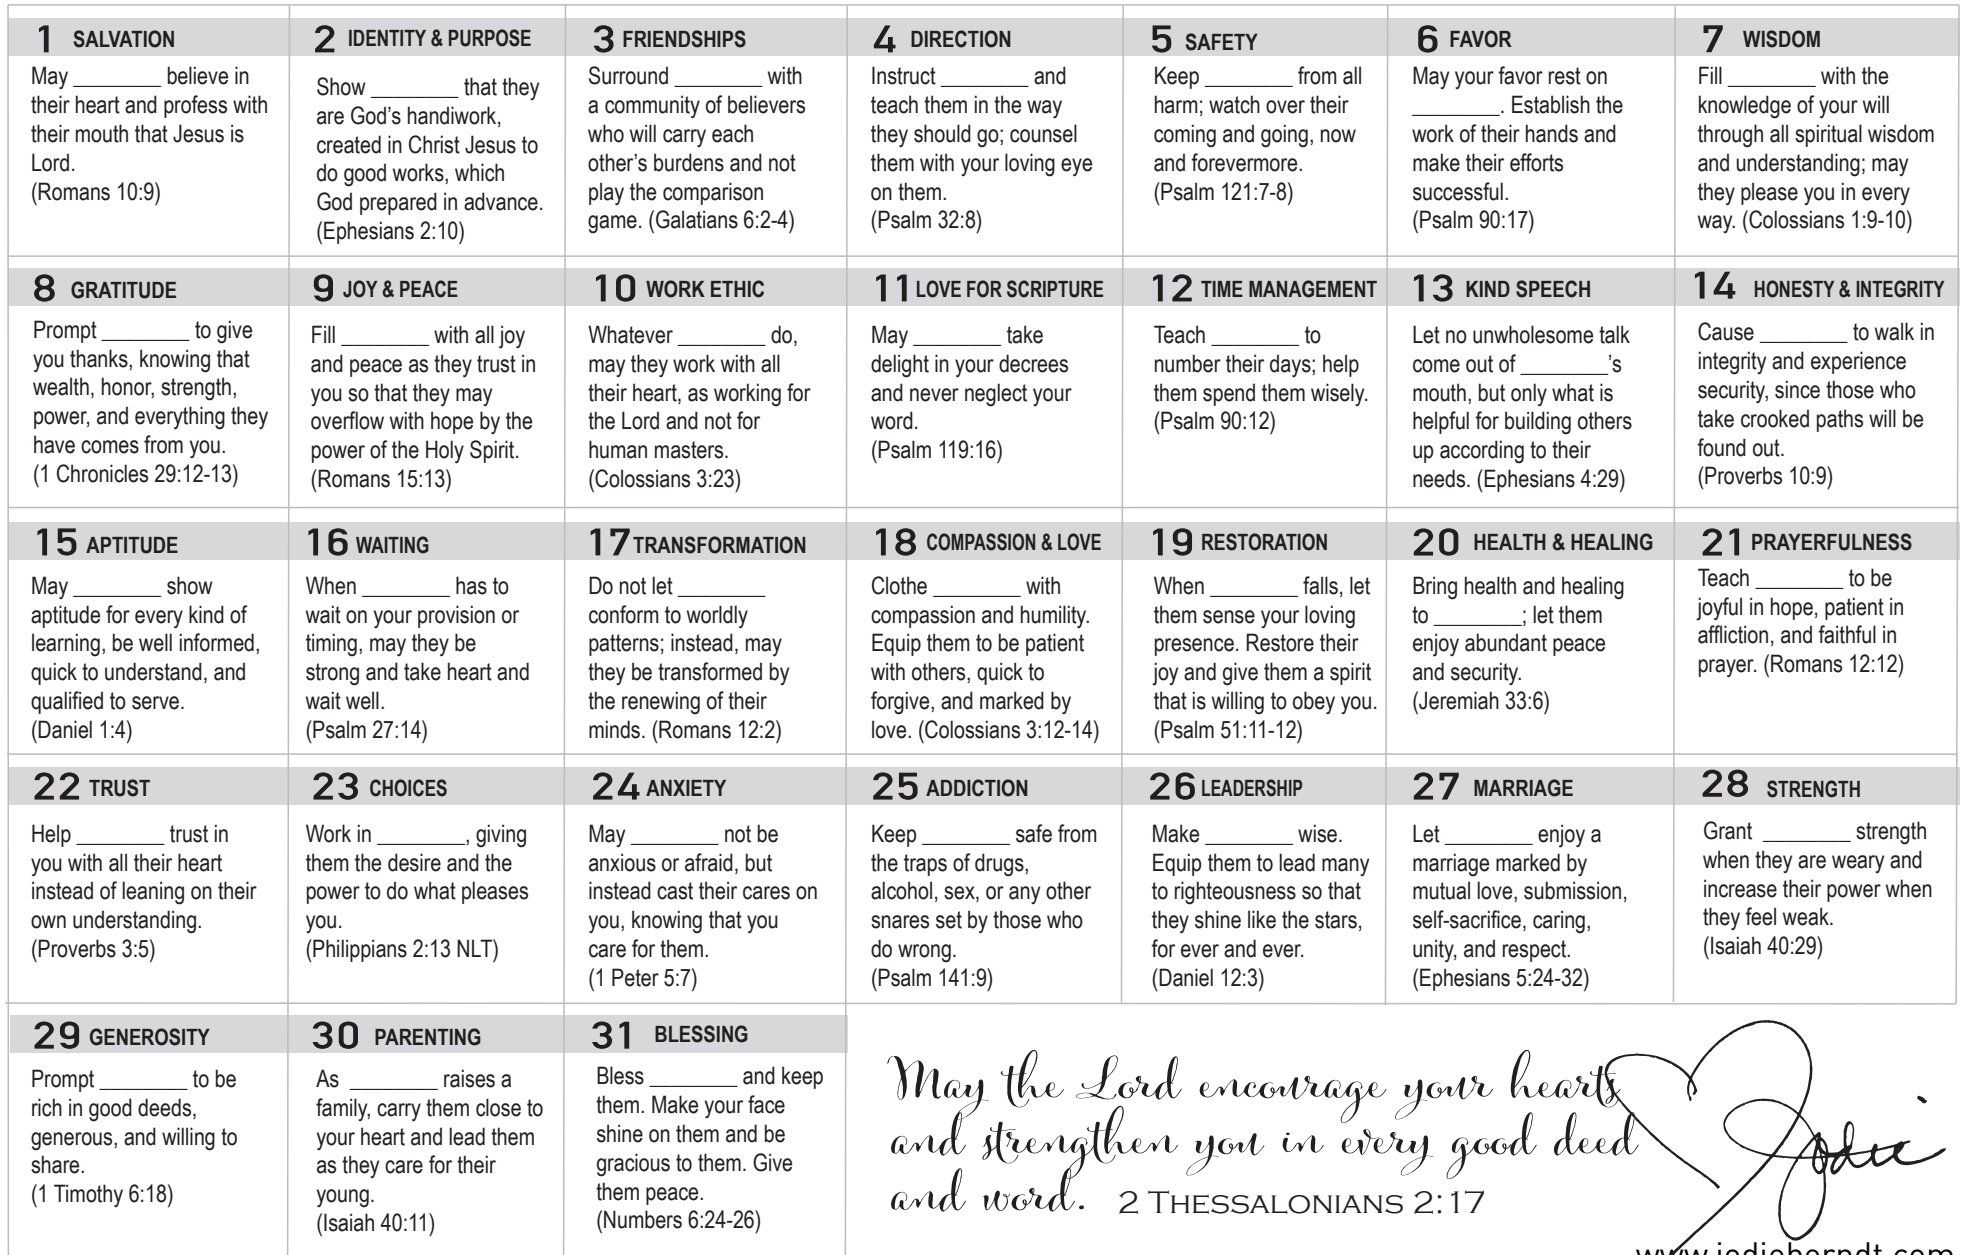 1 SALVATION
May ________ believe in
their heart and profess with
their mouth that Jesus is
Lord.
(Romans 10:9)
2 IDENTITY & PURPOSE
Show ________ that they
are God's handiwork,
created in Christ Jesus to
do good works, which
God prepared in advance.
(Ephesians 2:10)
3 FRIENDSHIPS
Surround ________ with
a community of believers
who will carry each
other's burdens and not
play the comparison
game. (Galatians 6:2-4)
4 DIRECTION
Instruct ________ and
teach them in the way
they should go; counsel
them with your loving eye
on them.
(Psalm 32:8)
5 SAFETY
Keep ________ from all
harm; watch over their
coming and going, now
and forevermore.
(Psalm 121:7-8)
6 FAVOR
May your favor rest on
________. Establish the
work of their hands and
make their efforts
successful.
(Psalm 90:17)
7 WISDOM
Fill ________ with the
knowledge of your will
through all spiritual wisdom
and understanding; may
they please you in every
way. (Colossians 1:9-10)
8 GRATITUDE
Prompt ________ to give
you thanks, knowing that
wealth, honor, strength,
power, and everything they
have comes from you.
(1 Chronicles 29:12-13)
9 JOY & PEACE
Fill ________ with all joy
and peace as they trust in
you so that they may
overflow with hope by the
power of the Holy Spirit.
(Romans 15:13)
10 WORK ETHIC
Whatever ________ do,
may they work with all
their heart, as working for
the Lord and not for
human masters.
(Colossians 3:23)
11 LOVE FOR SCRIPTURE
May ________ take
delight in your decrees
and never neglect your
word.
(Psalm 119:16)
12 TIME MANAGEMENT
Teach ________ to
number their days; help
them spend them wisely.
(Psalm 90:12)
13 KIND SPEECH
Let no unwholesome talk
come out of ________'s
mouth, but only what is
helpful for building others
up according to their
needs. (Ephesians 4:29)
14 HONESTY & INTEGRITY
Cause ________ to walk in
integrity and experience
security, since those who
take crooked paths will be
found out.
(Proverbs 10:9)
15 APTITUDE
May ________ show
aptitude for every kind of
learning, be well informed,
quick to understand, and
qualified to serve.
(Daniel 1:4)
16 WAITING
When ________ has to
wait on your provision or
timing, may they be
strong and take heart and
wait well.
(Psalm 27:14)
17 TRANSFORMATION
Do not let ________
conform to worldly
patterns; instead, may
they be transformed by
the renewing of their
minds. (Romans 12:2)
18 COMPASSION & LOVE
Clothe ________ with
compassion and humility.
Equip them to be patient
with others, quick to
forgive, and marked by
love. (Colossians 3:12-14)
19 RESTORATION
When ________ falls, let
them sense your loving
presence. Restore their
joy and give them a spirit
that is willing to obey you.
(Psalm 51:11-12)
20 HEALTH & HEALING
Bring health and healing
to ________; let them
enjoy abundant peace
and security.
(Jeremiah 33:6)
21 PRAYERFULNESS
Teach ________ to be
joyful in hope, patient in
affliction, and faithful in
prayer. (Romans 12:12)
22 TRUST
Help ________ trust in
you with all their heart
instead of leaning on their
own understanding.
(Proverbs 3:5)
23 CHOICES
Work in ________, giving
them the desire and the
power to do what pleases
you.
(Philippians 2:13 NLT)
24 ANXIETY
May ________ not be
anxious or afraid, but
instead cast their cares on
you, knowing that you
care for them.
(1 Peter 5:7)
25 ADDICTION
Keep ________ safe from
the traps of drugs,
alcohol, sex, or any other
snares set by those who
do wrong.
(Psalm 141:9)
26 LEADERSHIP
Make ________ wise.
Equip them to lead many
to righteousness so that
they shine like the stars,
for ever and ever.
(Daniel 12:3)
27 MARRIAGE
Let ________ enjoy a
marriage marked by
mutual love, submission,
self-sacrifice, caring,
unity, and respect.
(Ephesians 5:24-32)
28 STRENGTH
Grant ________ strength
when they are weary and
increase their power when
they feel weak.
(Isaiah 40:29)
29 GENEROSITY
Prompt ________ to be
rich in good deeds,
generous, and willing to
share.
(1 Timothy 6:18)
30 PARENTING
As ________ raises a
family, carry them close to
your heart and lead them
as they care for their
young.
(Isaiah 40:11)
31 BLESSING
Bless ________ and keep
them. Make your face
shine on them and be
gracious to them. Give
them peace.
(Numbers 6:24-26)
May the Lord encourage your hearts
and strengthen you in every good deed
and word. 2 THESSALONIANS 2:17
Jodie
www.jodieberndt.com